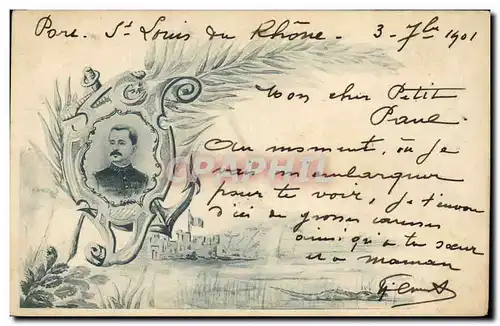 Port. St Louis du Rhône - 3 - 7bre 1901
Mon cher Petit
Paul
Au moment, où Je
vais m'embarquer
pour te voir, je t'envoie
d'ici de grosses caresses
ainsi qu'à ta sœur
et à maman
CPAPHIL